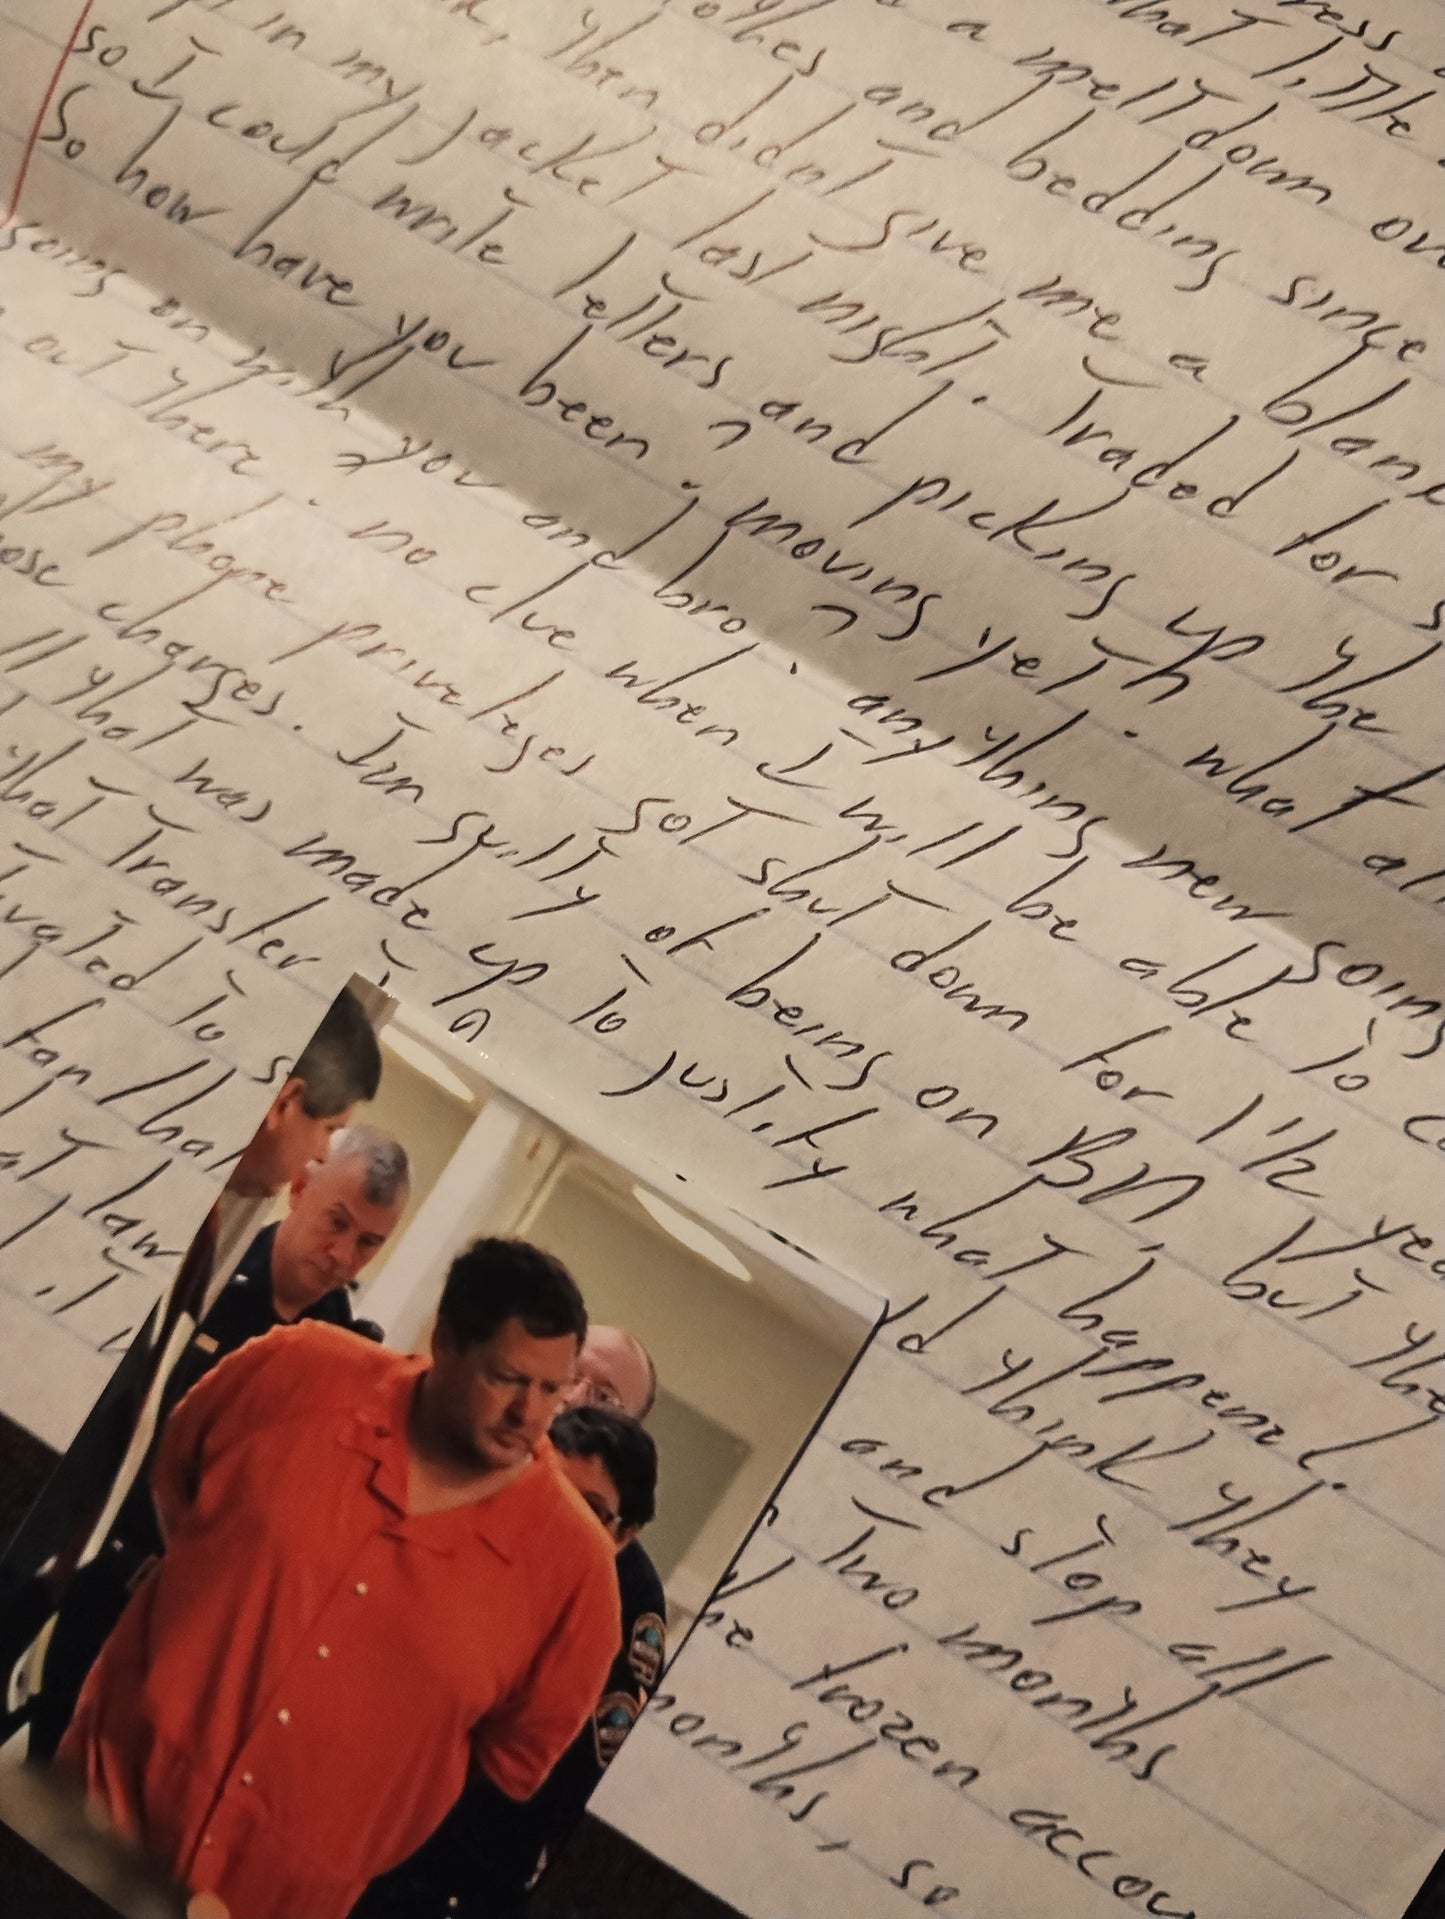 that little
a meltdown
and bedding since
then didnt give me a
in my jacket last night. Traded for
so I could write letters and picking up the
So how have you been? moving yet? what
going on with you and bro? anything new going
out there. no clue when I will be able to
my phone priveleges got shut down for 1 1/2
charges. Im guilty of being on BM, but
that was made up to justify what happened.
that transfer think they
to and stop all
Two months
law frozen
months, so